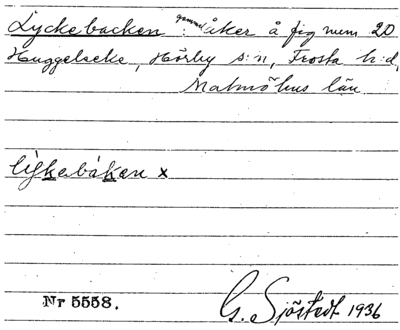 Lyckebacken : gammal åker å fig num 20
Huggelseke, Hörby s:n, Frosta h:d,
Malmöhus län
lykebákæn x
Nr 5558.
G. Sjöstedt 1936